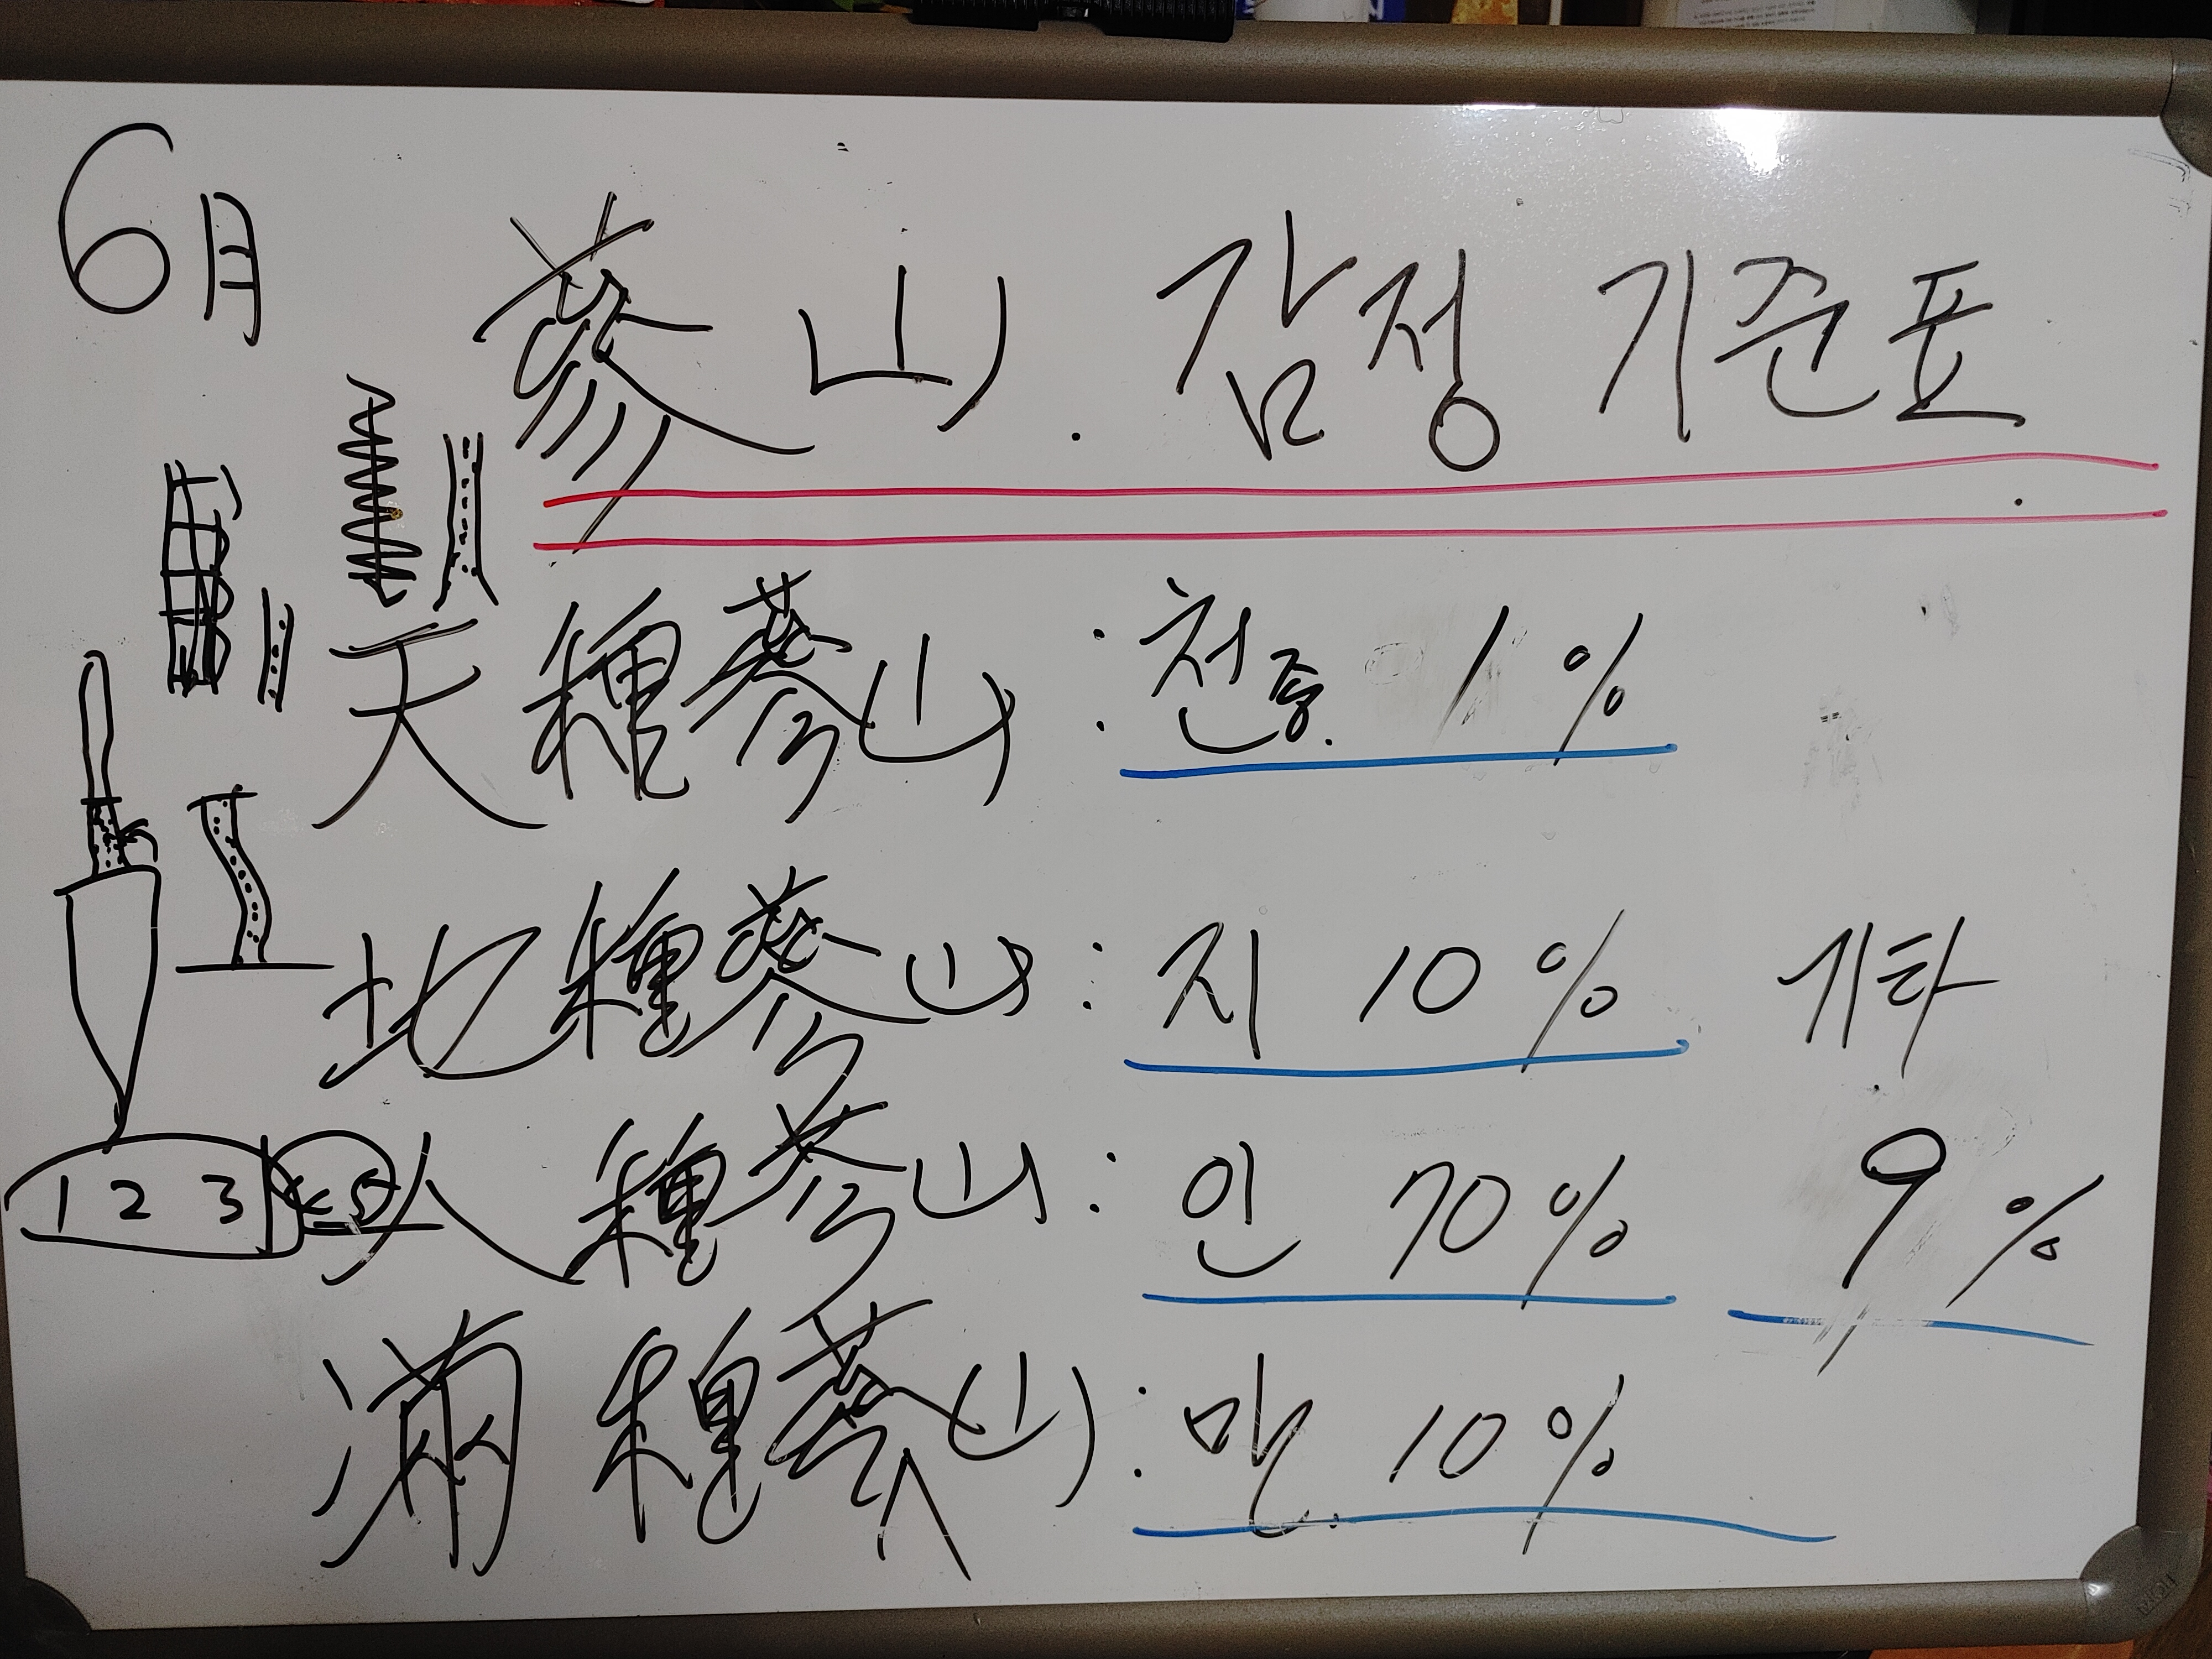 6月
蔘山. 감정 기준표
天種蔘山 : 천종. 1%
地種蔘山 : 지 10% 기타
人種蔘山 : 인 70% 9%
滿種蔘山 : 만. 10%
1 2 3